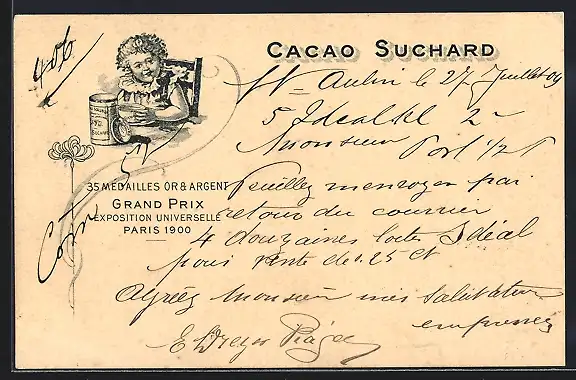 CACAO SUCHARD
406
St-Aubin le 27 Juillet 04
5 Ideal 2
Monsieur Port 1/2
SUCHARD
35 MEDAILLES OR & ARGENT
GRAND PRIX
EXPOSITION UNIVERSELLE
PARIS 1900
Veuillez m'envoyer par
retour du courrier
4 douzaines boites Idéal
pour vente de 1.25 ct
Agréez Monsieur mes Salutations
empressées